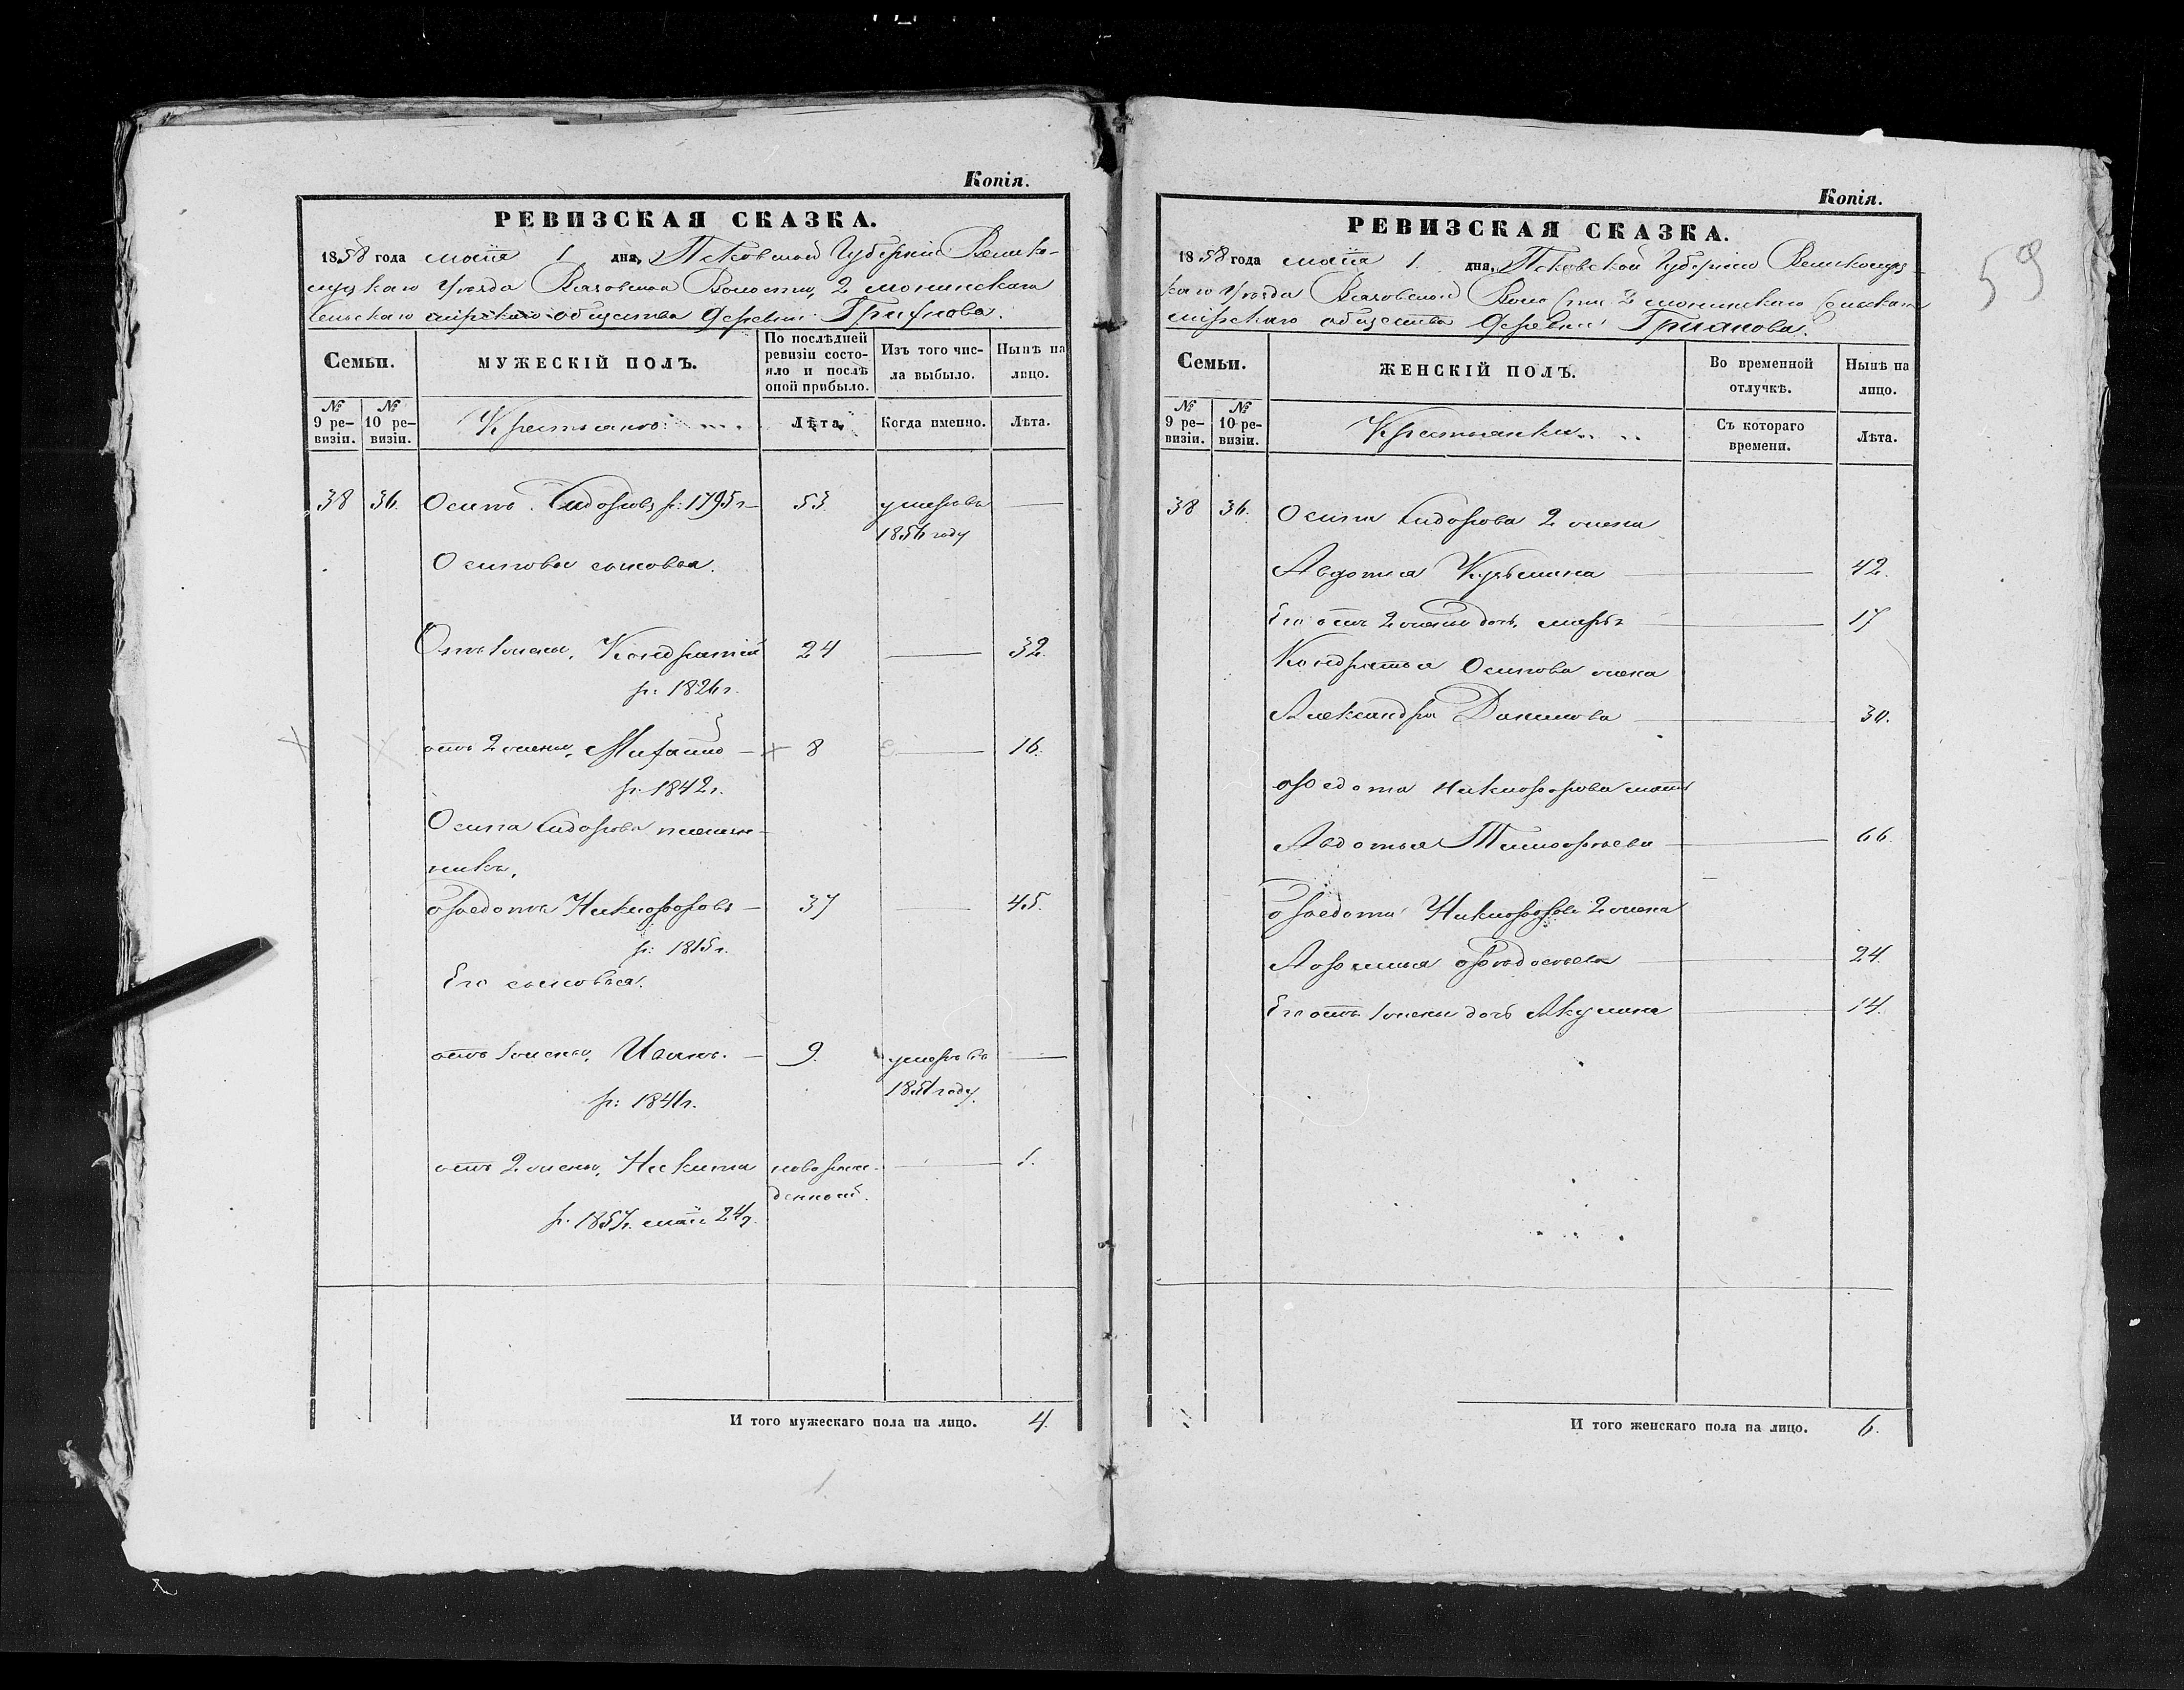 Копія.
РЕВИЗСКАЯ СКАЗКА.
1858 года маія 1 дня, Псковской Губерніи Велико-
луцкаго Уѣзда Волости, 2
сельскаго мірскаго общества Деревни
Семьи.
МУЖЕСКІЙ ПОЛЪ.
По послѣдней
ревизіи состо-
яло и послѣ
оной прибыло.
Изъ того чис-
ла выбыло.
Нынѣ на
лицо.
№
9 ре-
визіи.
№
10 ре-
визіи.
Крестьяне
Лѣта.
Когда именно.
Лѣта.
38 36. Осипъ Сидоровъ р: 1795 г 53 умеръ въ —
1856 году
Осиповы сыновья.
Отъ 1 жены, Кондратій 24 — 32.
р: 1826 г.
отъ 2 жены, Михайло — × 8 — 16.
р: 1842 г.
Осипа Сидорова племян-
никъ,
Ѳедотъ Никифоровъ — 37 — 45.
р: 1815 г.
Его сыновья.
отъ 1 жены, Иванъ. — 9. умеръ въ —
году
р: г.
отъ 2 жены, Никита новорож- — 1.
денной.
р: 1857 г. маія 24 д.
И того мужескаго пола на лицо. 4.
Копія.
59
РЕВИЗСКАЯ СКАЗКА.
1858 года маія 1. дня, Псковской Губерніи Великолуц-
каго Уѣзда Волости 2 сельскаго
мірскаго общества Деревни
Семьи.
ЖЕНСКІЙ ПОЛЪ.
Во временной
отлучкѣ.
Нынѣ на
лицо.
№
9 ре-
визіи.
№
10 ре-
визіи.
Крестьянки
Съ котораго
времени.
Лѣта.
38 36. Осипа Сидорова 2 жена
Авдотья Кузьмина — 42.
Его отъ 2 жены дочь — 17
Кондратья Осипова жена
Александра Данилова — 30.
Ѳедота Никифорова мать
Авдотья Тимофѣева — 66.
Ѳедота Никифорова 2 жена
Афимья — 24.
Его отъ 1 жены дочь Акулина — 14.
И того женскаго пола на лицо. 6.